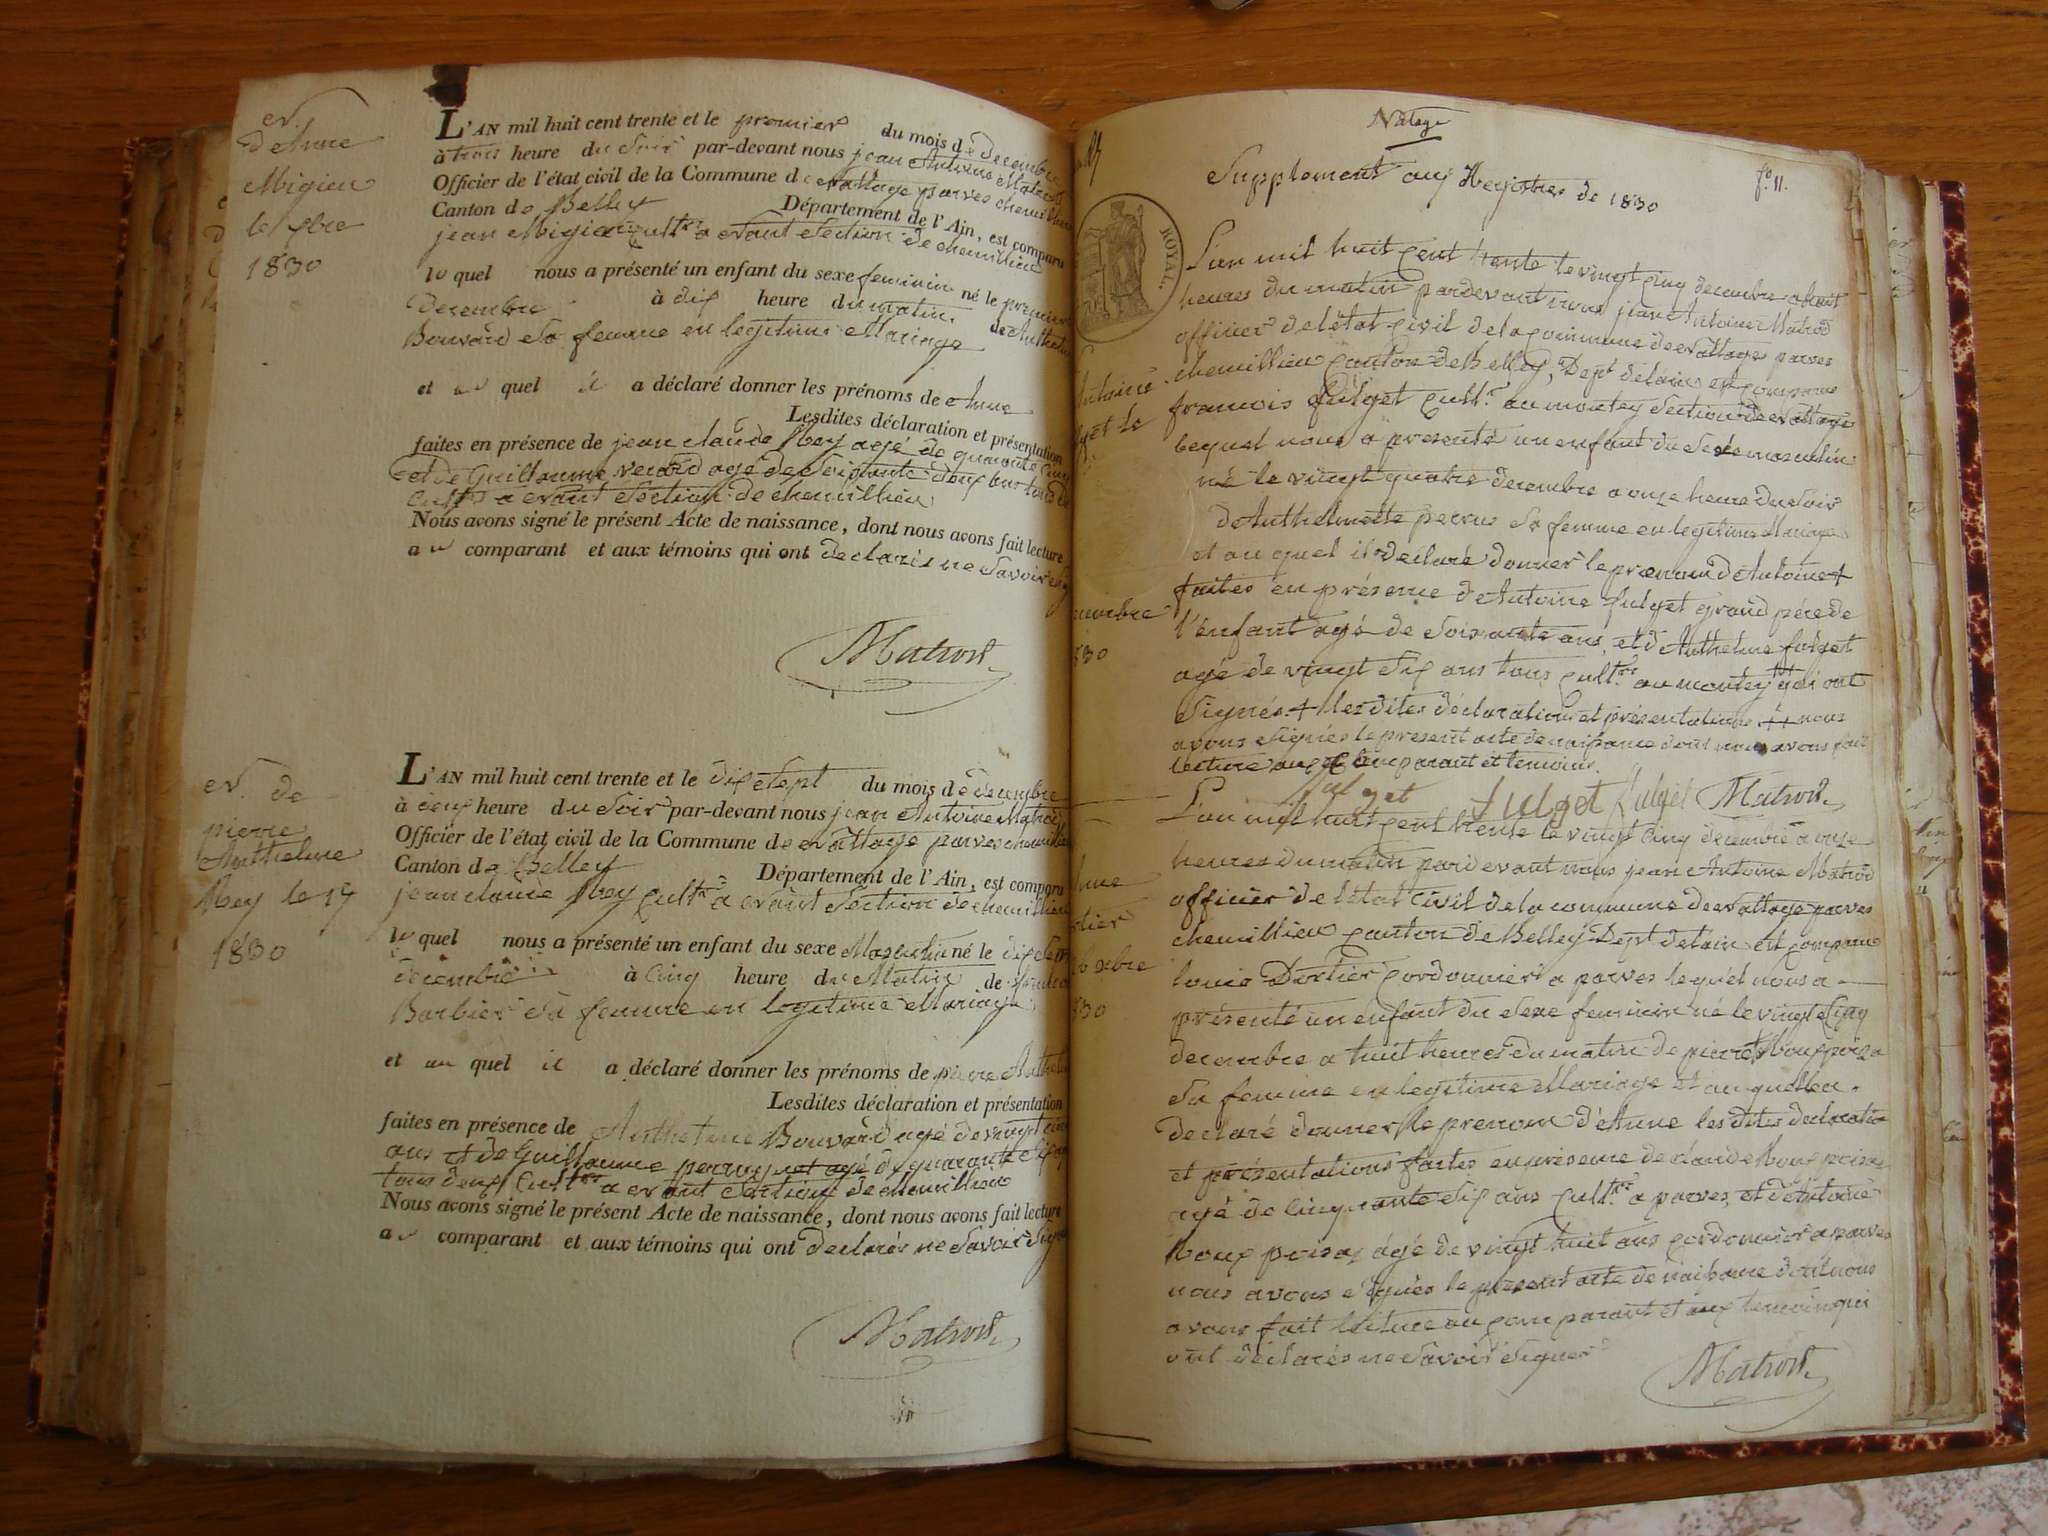 N.
d'Anne
Migieu
le
1830
L'AN mil huit cent trente et le premier du mois de Decembre
à trois heure du Soir par-devant nous jean Antoine Matrod
Officier de l'état civil de la Commune de Nattage parves chemillieu
Canton de Belley Département de l'Ain, est comparu
jean Migieu Cult.r a Section de chemillieu
lequel nous a présenté un enfant du sexe feminin né le premier
Decembre à dix heure du matin
Bouvard Sa femme en legitime Mariage
et au quel il a déclaré donner les prénoms de Anne
Lesdites déclaration et présentation
faites en présence de jean claude Rey agé de quarante cinq
et de Guillaume agé de Soixante deux ans tous
Cult.rs a Section de chemillieu
Nous avons signé le présent Acte de naissance, dont nous avons fait lecture
au comparant et aux témoins qui ont declarés ne Savoir
Matrod
N. de
pierre
Anthelme
Rey le 17
1830
L'AN mil huit cent trente et le dix Sept du mois de Decembre
à heure du Soir par-devant nous jean Antoine Matrod
Officier de l'état civil de la Commune de Nattage parves chemillieu
Canton de Belley Département de l'Ain, est comparu
jean claude Rey Cult.r a Section de chemillieu
lequel nous a présenté un enfant du sexe Masculin né le dix Sept
decembre à Cinq heure du Matin de
Barbier Sa femme en legitime Mariage
et au quel il a déclaré donner les prénoms de pierre Anthelme
Lesdites déclaration et présentation
faites en présence de Anthelme Bouvard agé de vingt
ans et de Guillaume agé de quarante Six
tous deux Cult.rs a Section de chemillieu
Nous avons signé le présent Acte de naissance, dont nous avons fait lecture
au comparant et aux témoins qui ont declarés ne Savoir Signer
Matrod
Natage
Supplement aux Registres de 1830
f.o 11.
ROYAL.
L'an mil huit cent trente le vingt cinq decembre a huit
heures du matin pardevant nous jean Antoine Matrod
officier de l'etat civil de la commune de Nattage parves
chemillieu canton de Belley, Dept de l'ain est comparu
francois fulget cult.r au montey Section de Nattage
lequel nous a presenté un enfant du Sexe masculin
né le vingt quatre decembre a onze heure du Soir
d'Anthelmette perrus Sa femme en legitime Mariage
et au quel il a declaré donner le prenom d'Antoine +
faites en présence d'Antoine fulget grand pére de
l'enfant agé de Soixante ans, et d'Anthelme fulget
agé de vingt Six ans tous cult.rs au montey qui ont
Signés + les dites déclaration et présentations ++ nous
avons Signés le present acte de naissance dont nous avons fait
lecture aux comparant et temoins.
fulget fulget fulget Matrod
L'an mil huit cent trente le vingt cinq decembre a onze
heures du matin pardevant nous jean Antoine Matrod
officier de l'etat civil de la commune de Nattage parves
chemillieu canton de Belley Dept de l'ain est comparu
louis Dortier cordonnier a parves lequel nous a
présenté un enfant du Sexe feminin né le vingt Cinq
decembre a huit heures du matin de pierrette
Sa femme en legitime Mariage et au quel il a
declaré donner le prenom d'Anne les dites declaration
et présentations faites en présence de claude
agé de Cinquante Six ans cult.r a parves, et d'Antoine
agé de vingt huit ans cordonnier a parves
nous avons Signés le présent acte de naissance dont nous
avons fait lecture au comparant et aux temoins qui
ont déclarés ne Savoir Signer
Matrod